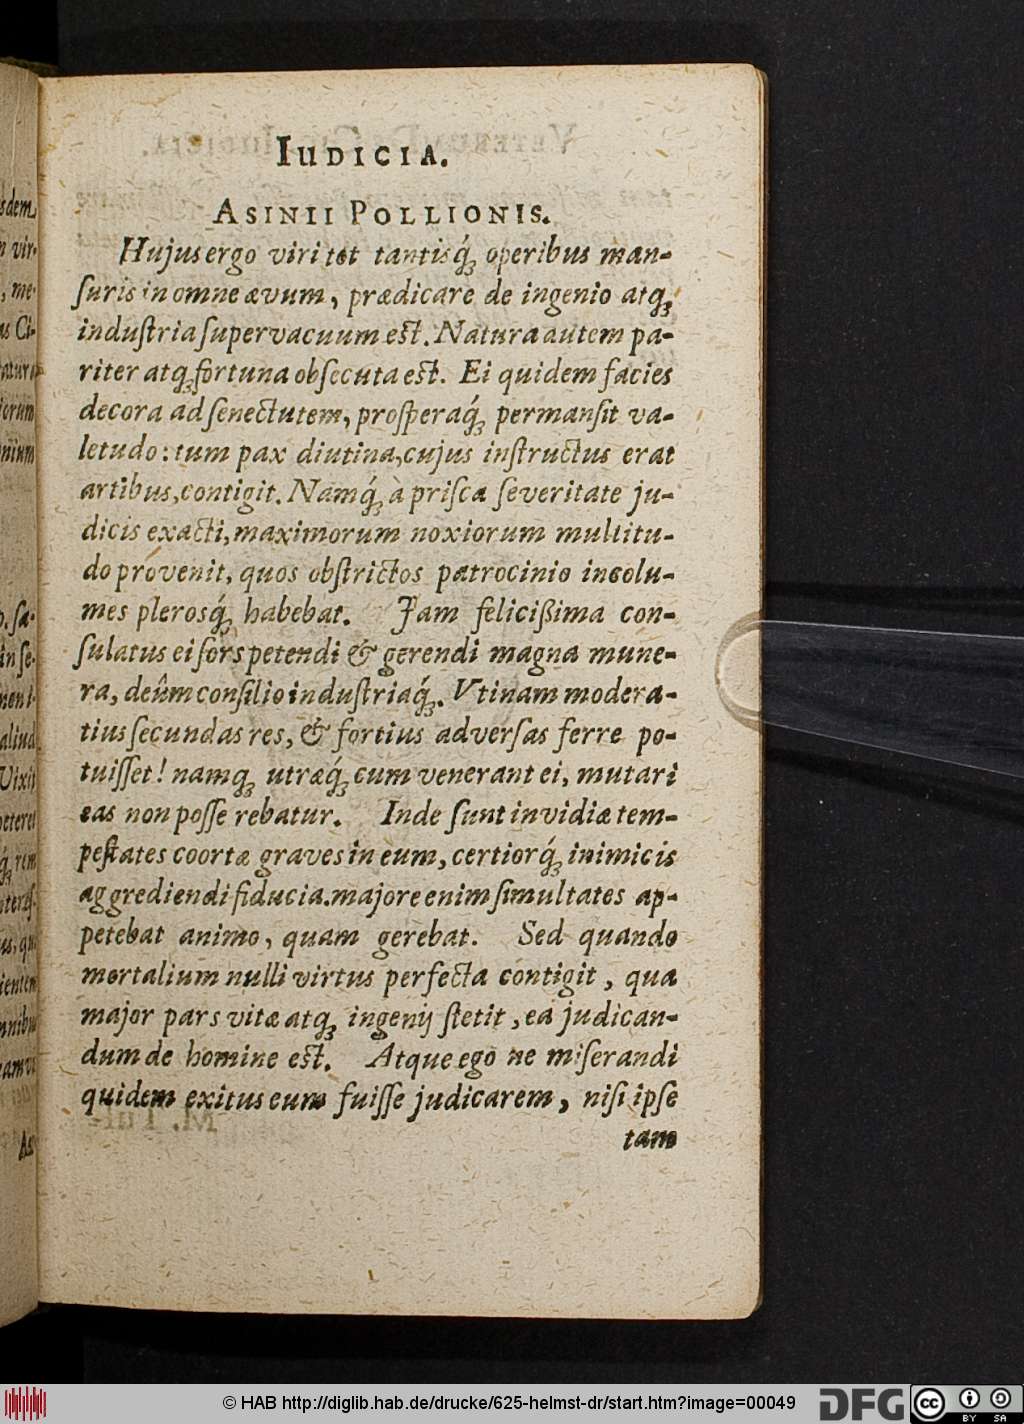 IUDICIA.
ASINII POLLIONIS.
Hujus ergo viri tot tantisq́; operibus man-
ſuris in omne ævum, prædicare de ingenio atq;
induſtria ſupervacuum est. Natura autem pa-
riter atq; fortuna obſecuta est. Ei quidem facies
decora ad ſenectutem, proſperaq́; permanſit va-
letudo: tum pax diutina, cujus inſtructus erat
artibus, contigit. Namq́; à priſca ſeveritate ju-
dicis exacti, maximorum noxiorum multitu-
do próvenit, quos obſtrictos patrocinio incolu-
mes plerosq́; habebat. Jam feliciſſima con-
ſulatus ei ſors petendi & gerendi magna mune-
ra, deûm conſilio induſtriaq́;. Vtinam modera-
tius ſecundas res, & fortius adverſas ferre po-
tuiſſet! namq; utræq́; cum venerant ei, mutari
eas non poſſe rebatur. Inde ſunt invidiæ tem-
peſtates coortæ graves in eum, certiorq́; inimicis
aggrediendi fiducia. majore enim ſimultates ap-
petebat animo, quam gerebat. Sed quando
mortalium nulli virtus perfecta contigit, qua
major pars vitæ atq; ingenij ſtetit, ea judican-
dum de homine est. Atque ego ne miſerandi
quidem exitus eum fuiſſe judicarem, niſi ipſe
tam
sdem
vir-
, me-
as Ci-
nium
aliud
Vixit
rem
As
© HAB http://diglib.hab.de/drucke/625-helmst-dr/start.htm?image=00049
DFG
cc
BY SA